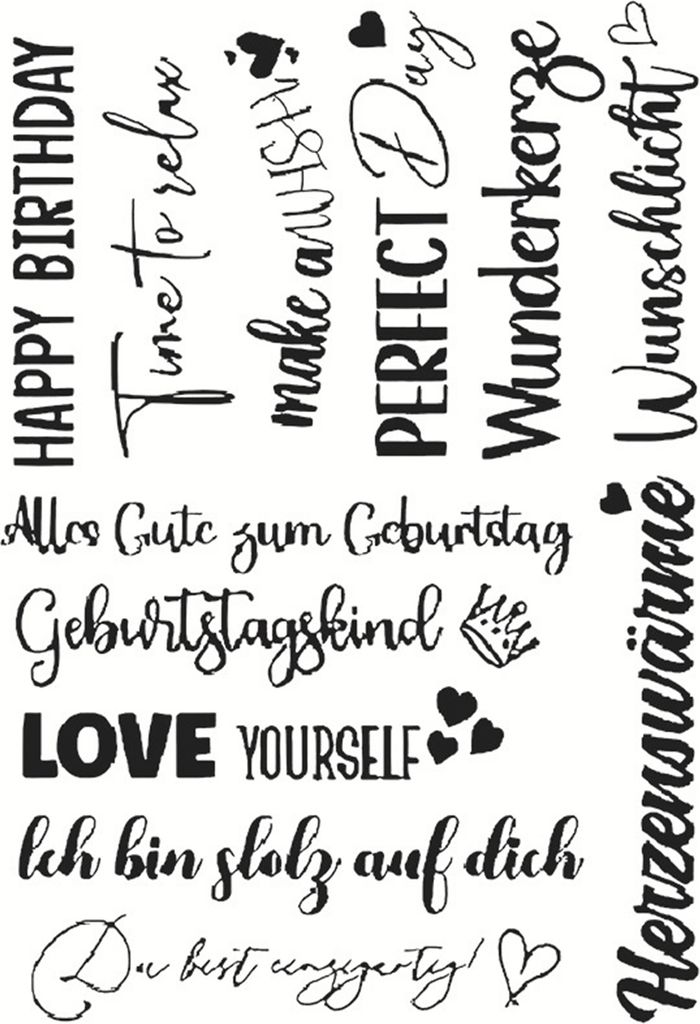 HAPPY BIRTHDAY
Time to relax
make a WISH
PERFECT Day
Wunderkerze
Wunschlicht
Alles Gute zum Geburtstag
Geburtstagskind
LOVE YOURSELF
Ich bin stolz auf dich
Du bist einzigartig!
Herzenswärme